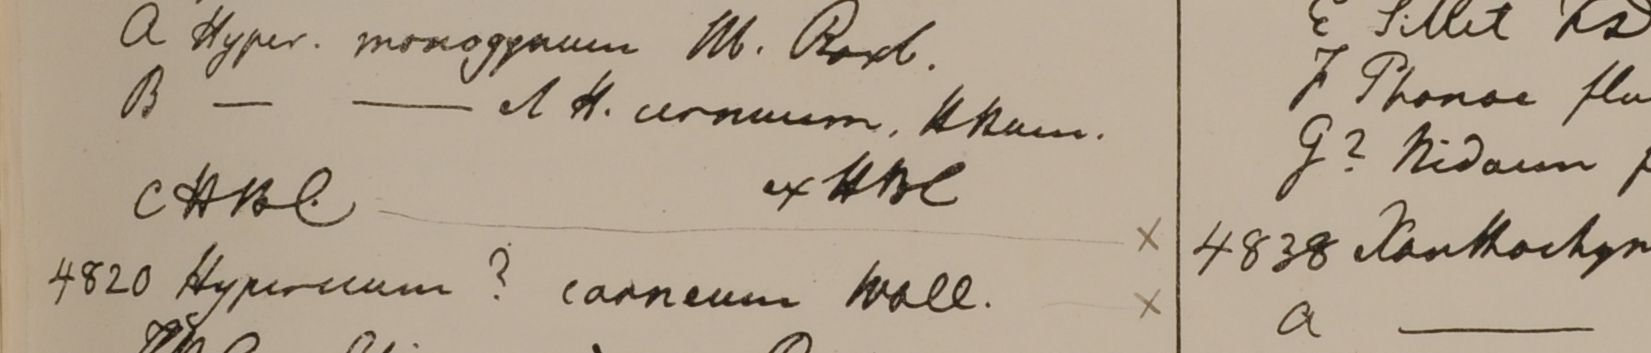 A Hyper. monogynum M. Roxb.
B — — et H. cernuum, HHam.
C HBC ex HBC
4820 Hypericum ? carneum Wall. ×
E Sillet
F Phonoe flu
G? Nidaun
× 4838 Xanthochym
a —